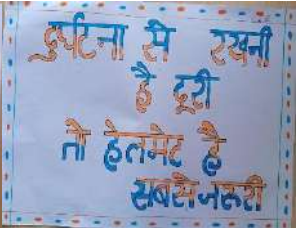 दुर्घटना से रखनी
है दूरी
तो हेलमेट है
सबसे जरुरी